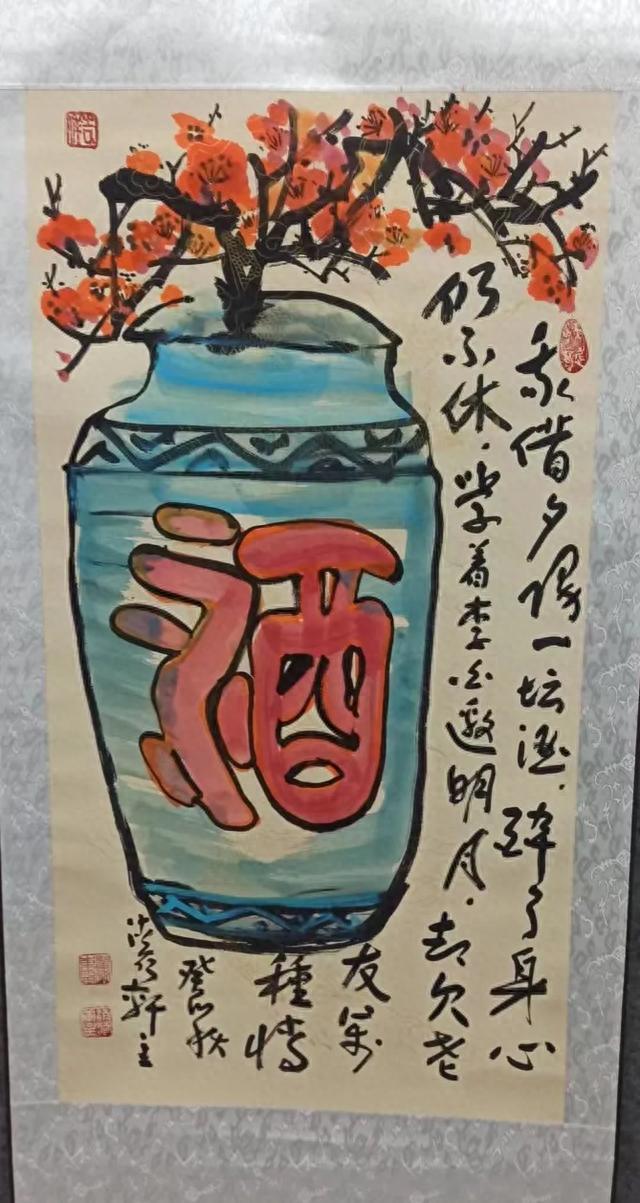 我借夕陽一坛酒．醉了身心
仍不休．学着李白邀明月．却欠老
友万
種情
癸卯秋
轩主
酒